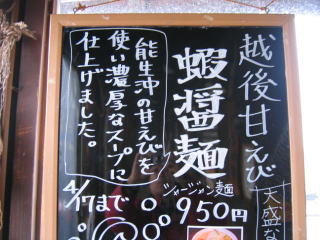 越後甘えび
天盛な
蝦醤麺
シャージャン麺
950円
能生沖の甘えびを
使い濃厚なスープに
仕上げました。
4/17まで